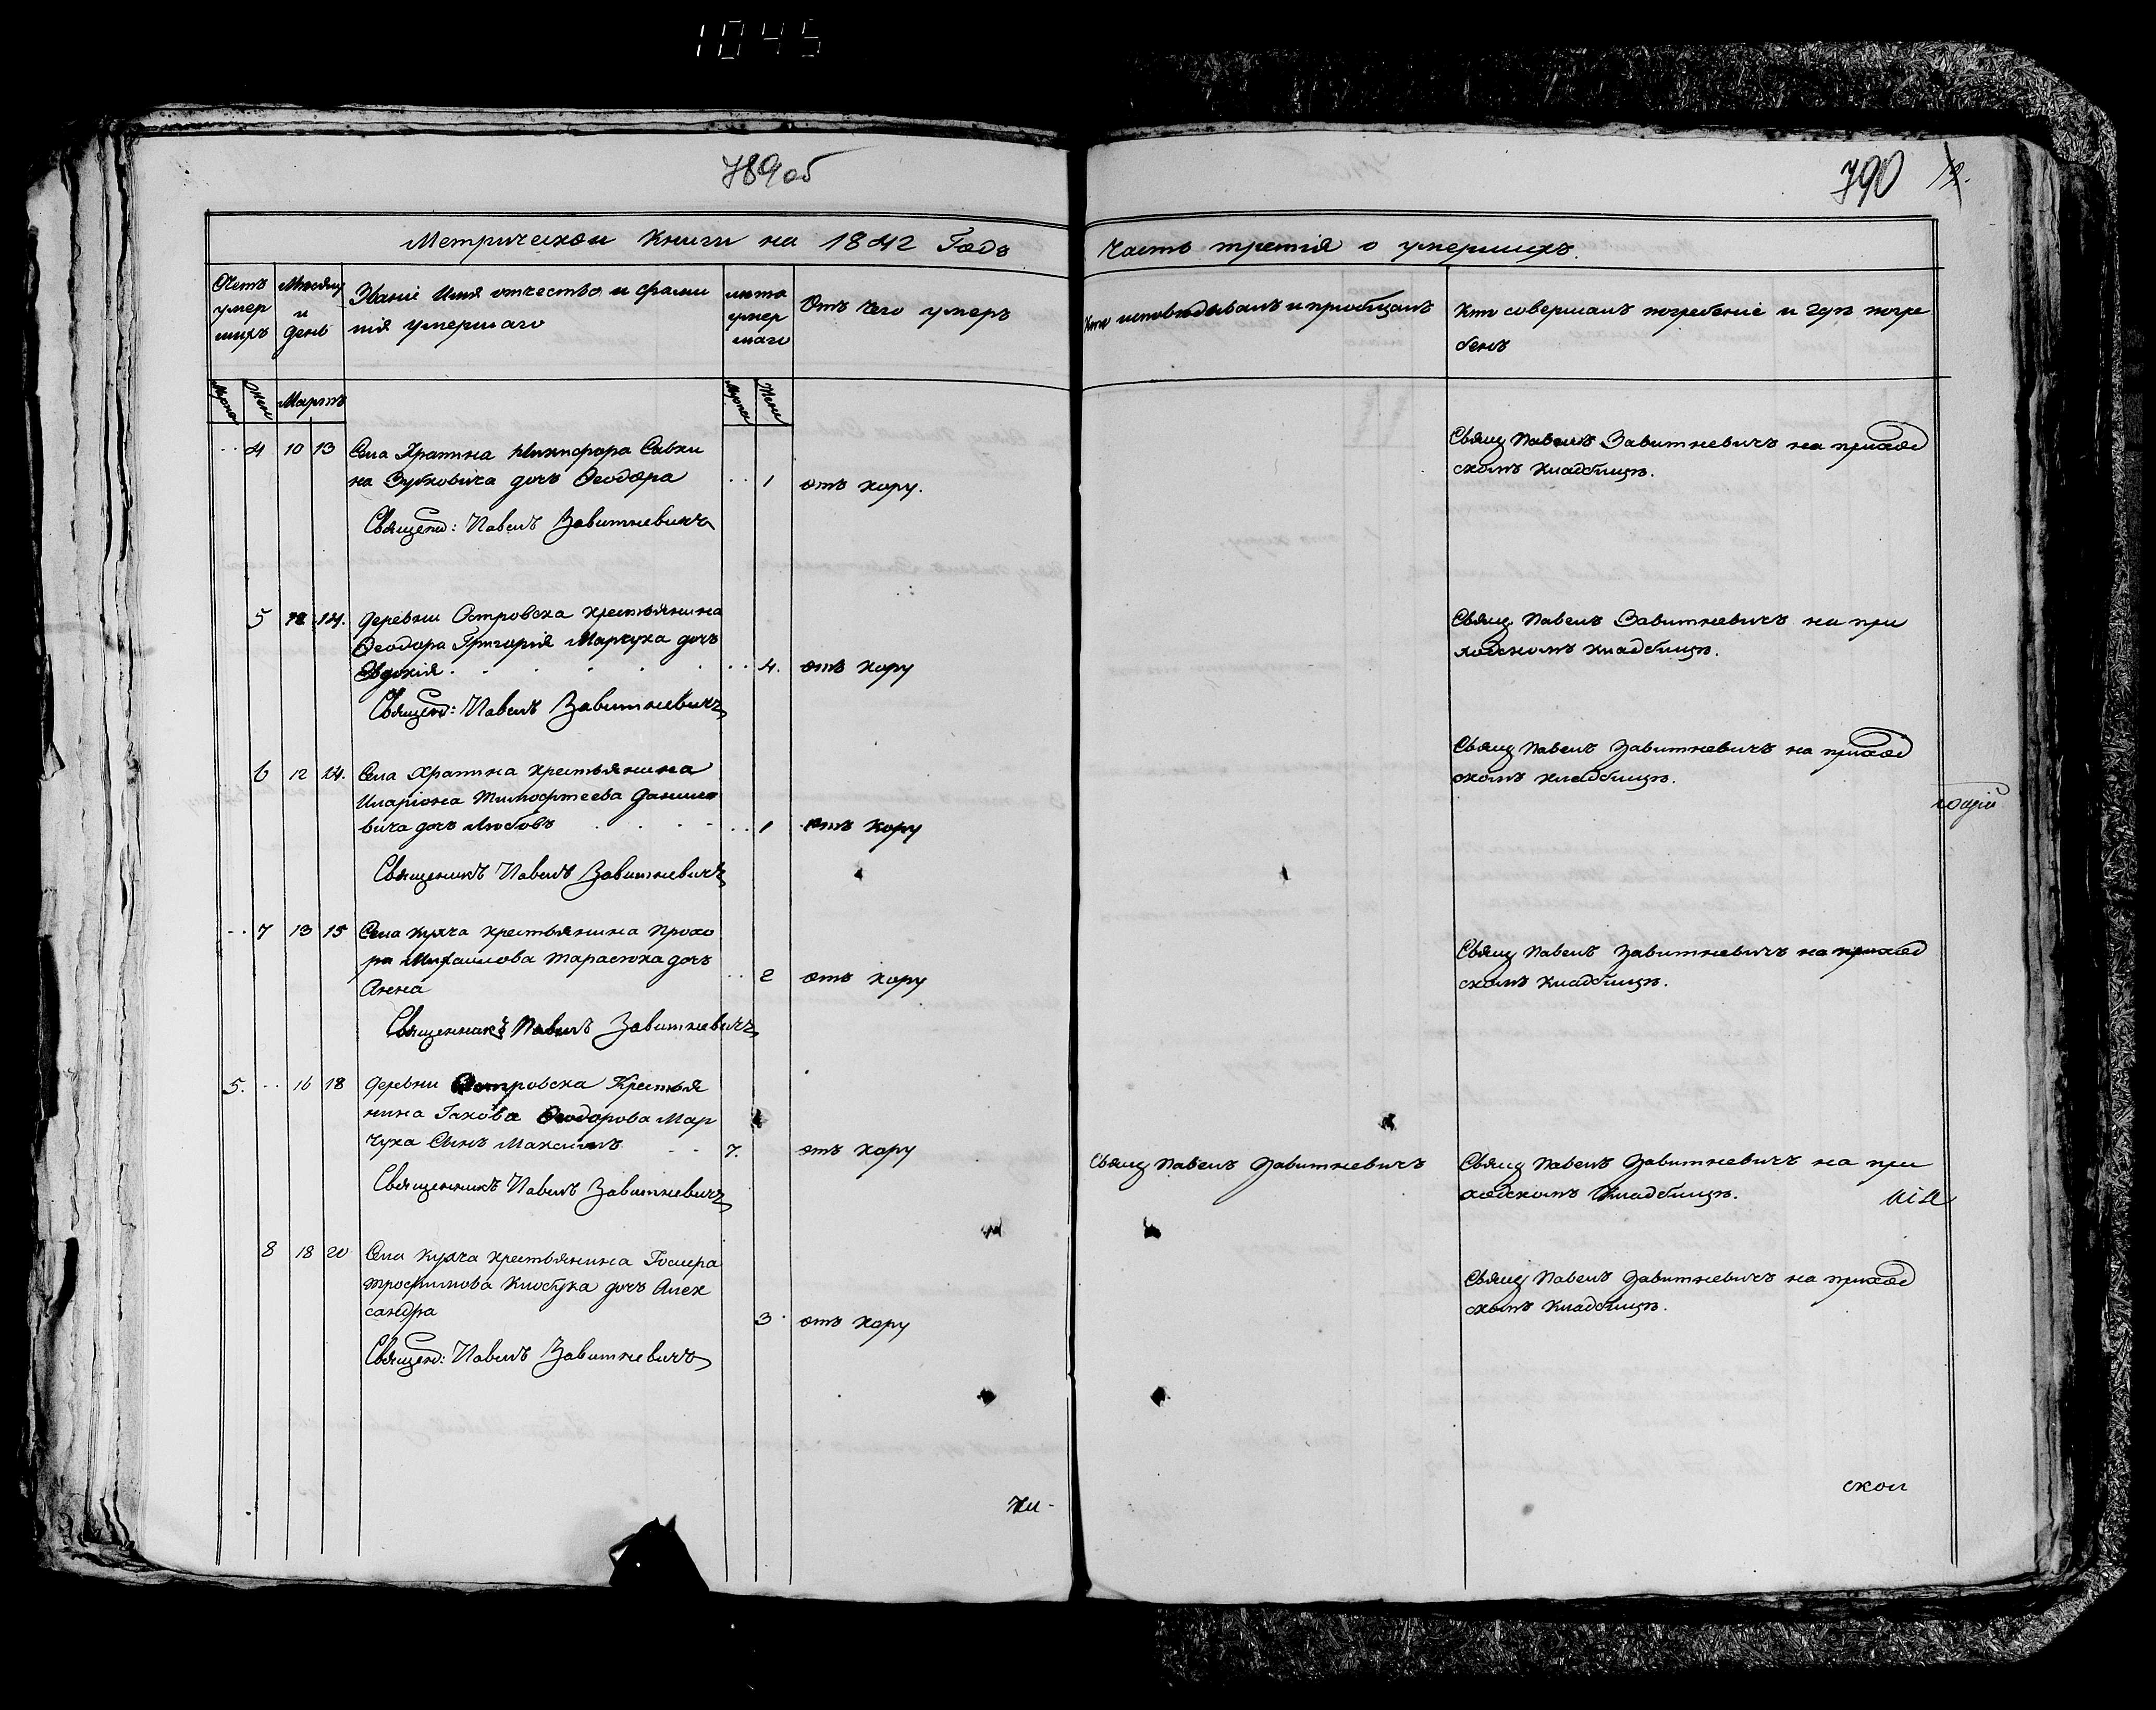 1045
789об
790
Метрической Книги на 1842 Годъ
Часть третія о умершихъ.
Счетъ умершихъ
Мѣсяцъ и день
Званіе Имя отчество и фамилія умершаго
лѣта умершаго
Отъ Чего умеръ
Кто исповѣдывалъ и пріобщалъ
Кто совершалъ погребеніе и гдѣ погребенъ
Мужс Жен Мартъ Мужес Женс
4 10 13 Села Храпина Никифора Савки
на Зубковича дочь Ѳеодора 1 отъ кору.
Священ: Павелъ Завитневичъ
Свящ Павелъ Завитневичъ на приход
скомъ кладбищѣ.
5 12 14. Деревни Островска крестьянина
Ѳеодора Григорія Марчука дочь
Евдокія 4. отъ кору
Священ: Павелъ Завитневичъ
Свящ Павелъ Завитневичъ на при
ходскомъ кладбищѣ.
6 12 14. Села Храпина крестьянина
Иларіона Тимофтеева Данило
вича дочь Любовъ 1 отъ кору
Священикъ Павелъ Завитневичъ
Свящ Павелъ Завитневичъ на приход
скомъ кладбищѣ.
7 13 15 Села Кухча крестьянина Прохо
ра Михаилова Тарасюка дочь
Анна 2 отъ кору
Священникъ Павелъ Завитневичъ
Свящ Павелъ Завитневичъ на приход
скомъ кладбищѣ.
5. 16 18 Деревни Островска Крестья
нина Іакова Ѳеодорова Мар
чука Сынъ Максимъ 7. отъ кору
Священникъ Павелъ Завитневичъ
Свящ Павелъ Завитневичъ
Свящ Павелъ Завитневичъ на при
ходскомъ кладбищѣ.
8 18 20 Села Кухча крестьянина
Трофимова дочь Алек
сандра 3 отъ кору
Священ: Павелъ Завитневичъ
Свящ Павелъ Завитневичъ на приход
скомъ кладбищѣ.
скои